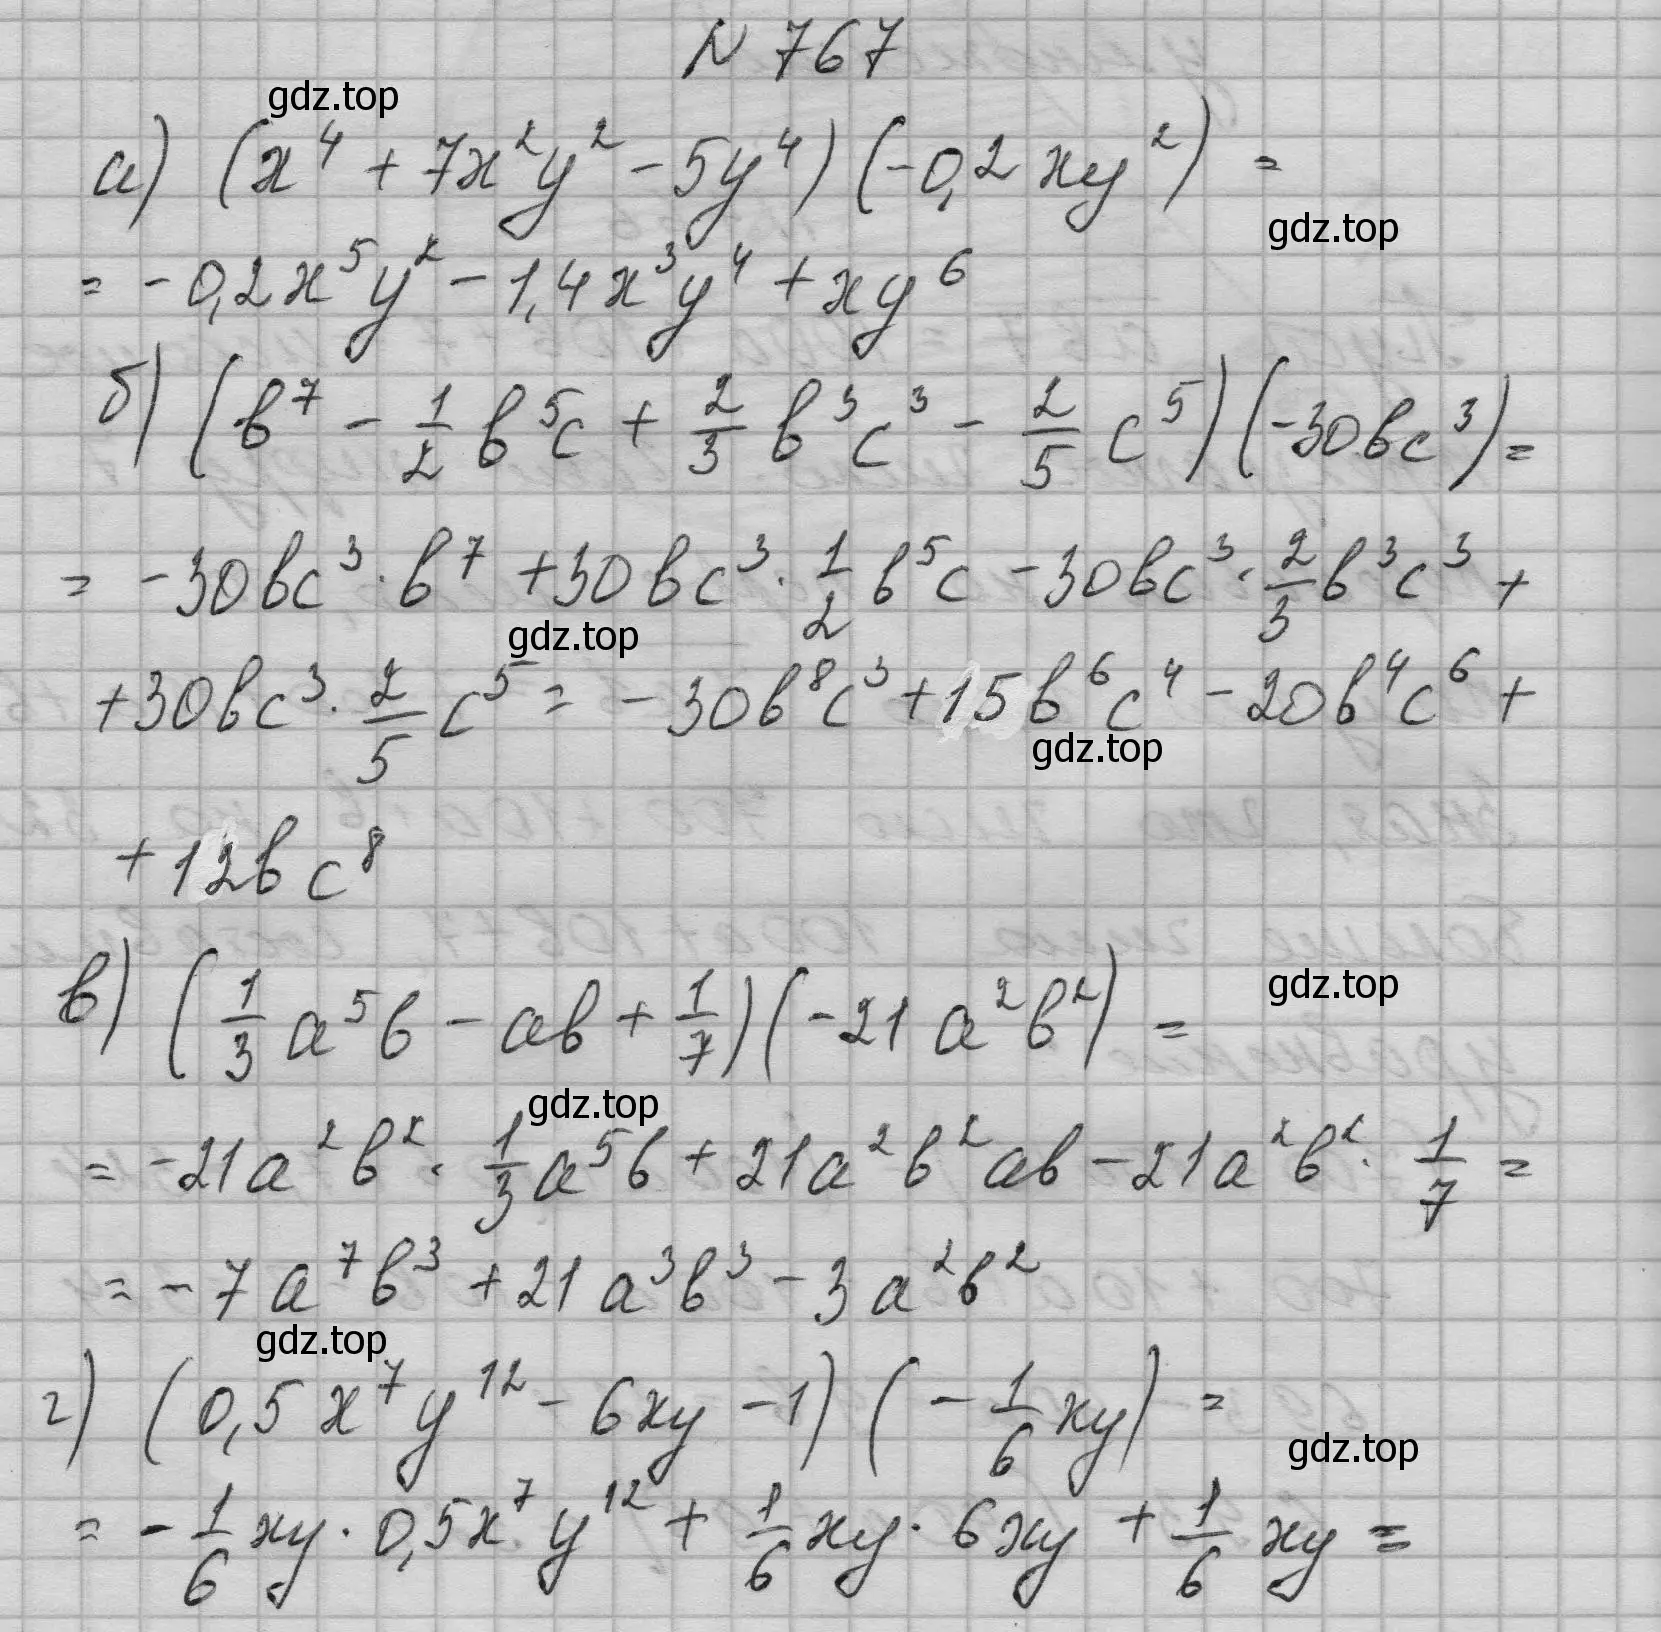 N 767
gdz.top
а) (x⁴ + 7x²y² - 5y⁴) (-0,2 xy²) =
gdz.top
= -0,2x⁵y² - 1,4x³y⁴ + xy⁶
б) (b⁷ - 1/2 b⁵c + 2/3 b³c³ - 2/5 c⁵) (-30bc³) =
= -30bc³ · b⁷ + 30bc³ · 1/2 b⁵c - 30bc³ · 2/3 b³c³ +
gdz.top
+ 30bc³ · 2/5 c⁵ = - 30b⁸c³ + 15b⁶c⁴ - 20b⁴c⁶ +
gdz.top
+ 12bc⁸
в) (1/3 a⁵b - ab + 1/7) (-21 a²b²) =
gdz.top
gdz.top
= -21a²b² · 1/3 a⁵b + 21a²b²ab - 21a²b² · 1/7 =
= -7a⁷b³ + 21a³b³ - 3a²b²
gdz.top
г) (0,5x⁷y¹² - 6xy - 1) (-1/6 xy) =
gdz.top
= -1/6 xy · 0,5x⁷y¹² + 1/6 xy · 6xy + 1/6 xy =